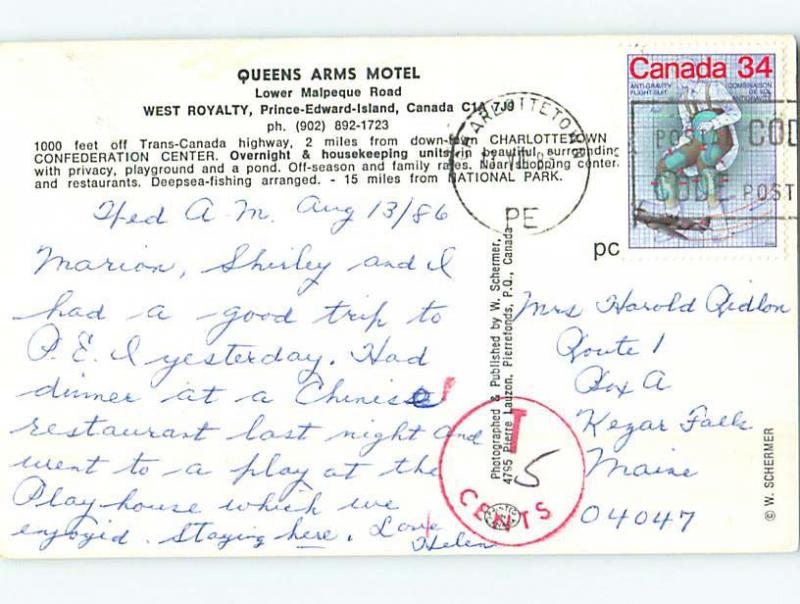 QUEENS ARMS MOTEL
Lower Malpeque Road
WEST ROYALTY, Prince-Edward-Island, Canada C1A 7J9
ph. (902) 892-1723
1000 feet off Trans-Canada highway, 2 miles from down-town CHARLOTTETOWN
CONFEDERATION CENTER. Overnight & housekeeping units in beautiful surrounding
with privacy, playground and a pond. Off-season and family rates. Near shopping center
and restaurants. Deepsea-fishing arranged. - 15 miles from NATIONAL PARK.
Canada 34
ANTI-GRAVITY
FLIGHT SUIT
COMBINAISON
DE VOL
ANTIGRAVITÉ
CHARLOTTETOWN
PE
POSTAL CODE
CODE POSTAL
pc
Wed A.M. Aug 13/86
Marion, Shirley and I
had a good trip to
P.E.I yesterday. Had
dinner at a Chinise
restaurant last night and
went to a play at the
Playhouse which we
enjoyid. Staying here. Love
Helen
Photographed & Published by W. Schermer,
4795 Pierre Lauzon, Pierrefonds, P.Q., Canada
T
5
CENTS
Mrs Harold Ridlon
Route 1
Box A
Kezar Falls
Maine
04047
© W. SCHERMER